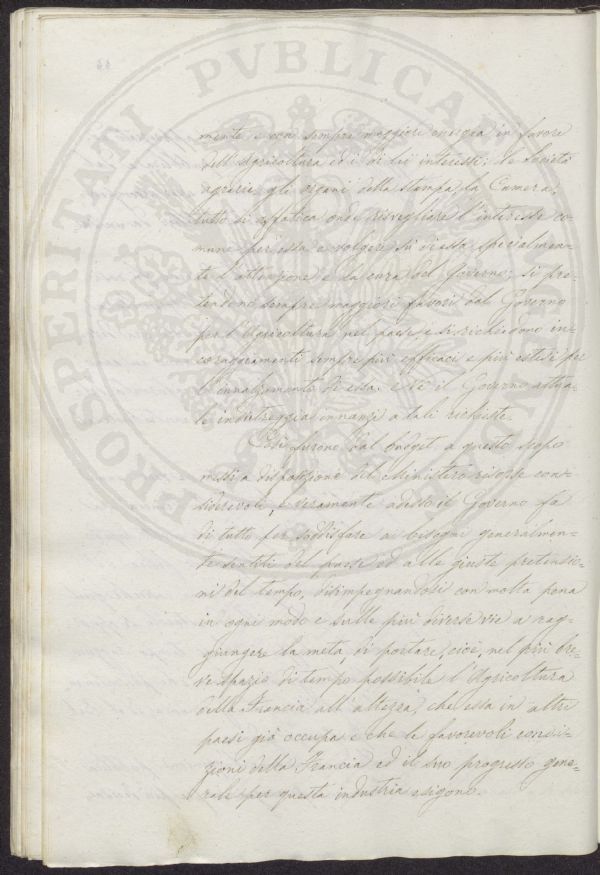 PROSPERITATI PVBLICAE AVGENDAE
mente e con sempre maggiore energia in favore
dell'Agricoltura ed i di lei interessi: le Società
agrarie, gli organi della stampa, la Camera,
tutto si affatica onde risvegliare l'interesse co-
mune per essa e volgere su di essa specialmen-
te l'attenzione e la cura del Governo; si pre-
tendono sempre maggiori favori dal Governo
per l'Agricoltura nel paese, e si richiedono in-
coraggiamenti sempre più efficaci e più estesi per
l'innalzamento di essa. e nè il Governo attua-
le indietreggia innanzi a tali richieste.
Così furono dal budget a questo scopo
messi a disposizione del Ministero risorse con-
siderevoli, e veramente adesso il Governo fa
di tutto per soddisfare ai bisogni generalmen-
te sentiti del paese ed alle giuste pretensio-
ni del tempo, disimpegnandosi con molta pena
in ogni modo e sulle più diverse vie a rag-
giungere la meta, di portare, cioè, nel più bre-
ve spazio di tempo possibile l'Agricoltura
della Francia all'altezza, che essa in altri
paesi già occupa e che le favorevoli condi-
zioni della Francia ed il suo progresso gene-
rale per questa industria esigono.